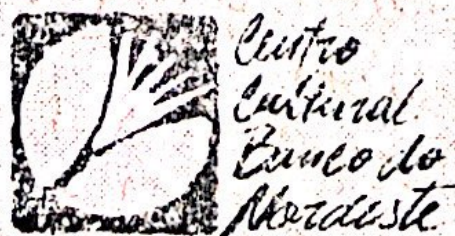 Centro
Cultural
Banco do
Nordeste